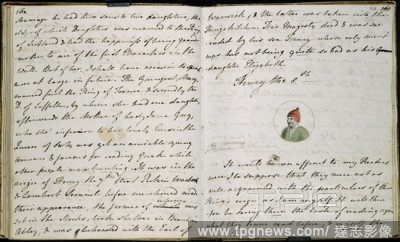 164
Marriage he had two sons & two daughters, the
elder of which Daughters was married to the King
of Scotland & had the happiness of being grand-
mother to one of the first Characters in the
World. But of her, I shall have occasion to speak
more at large in future. The Youngest, Mary,
married first the King of France & secondly the
D. of Suffolk, by whom she had one daughter,
afterwards the Mother of Lady Jane Grey,
who tho' inferior to her lovely Cousin the
Queen of Scots, was yet an amiable young
woman & famous for reading Greek while
other people were hunting. It was in the
reign of Henry the 7th that Perkin Warbeck
& Lambert Simnel before mentioned made
their appearance, the former of whom was
set in the Stocks, took shelter in Beaulieu
Abbey, & was beheaded with the Earl of
Warwick, & the latter was taken into the
Kings kitchen. His Majesty died & was suc-
ceeded by his son Henry whose only merit
was his not being quite so bad as his
daughter Elizabeth.
Henry the 8th
It would be an affront to my Readers
were I to suppose that they were not as
well acquainted with the particulars of this
King's reign as I am myself. It will there-
fore be saving them the task of reading again
what they have read before
www.tpgnews.com 達志影像